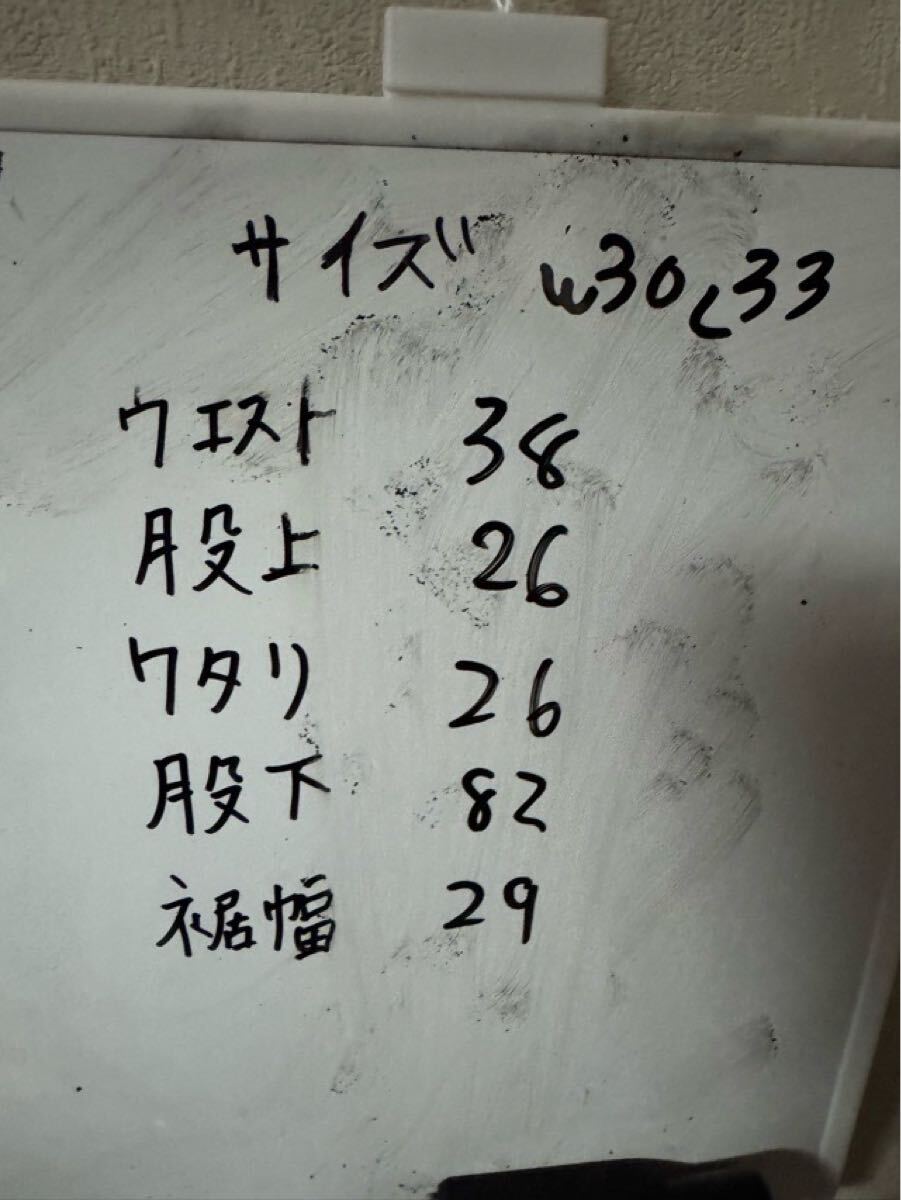 サイズ w30L33
ウエスト 38
股上 26
ワタリ 26
股下 82
裾幅 29